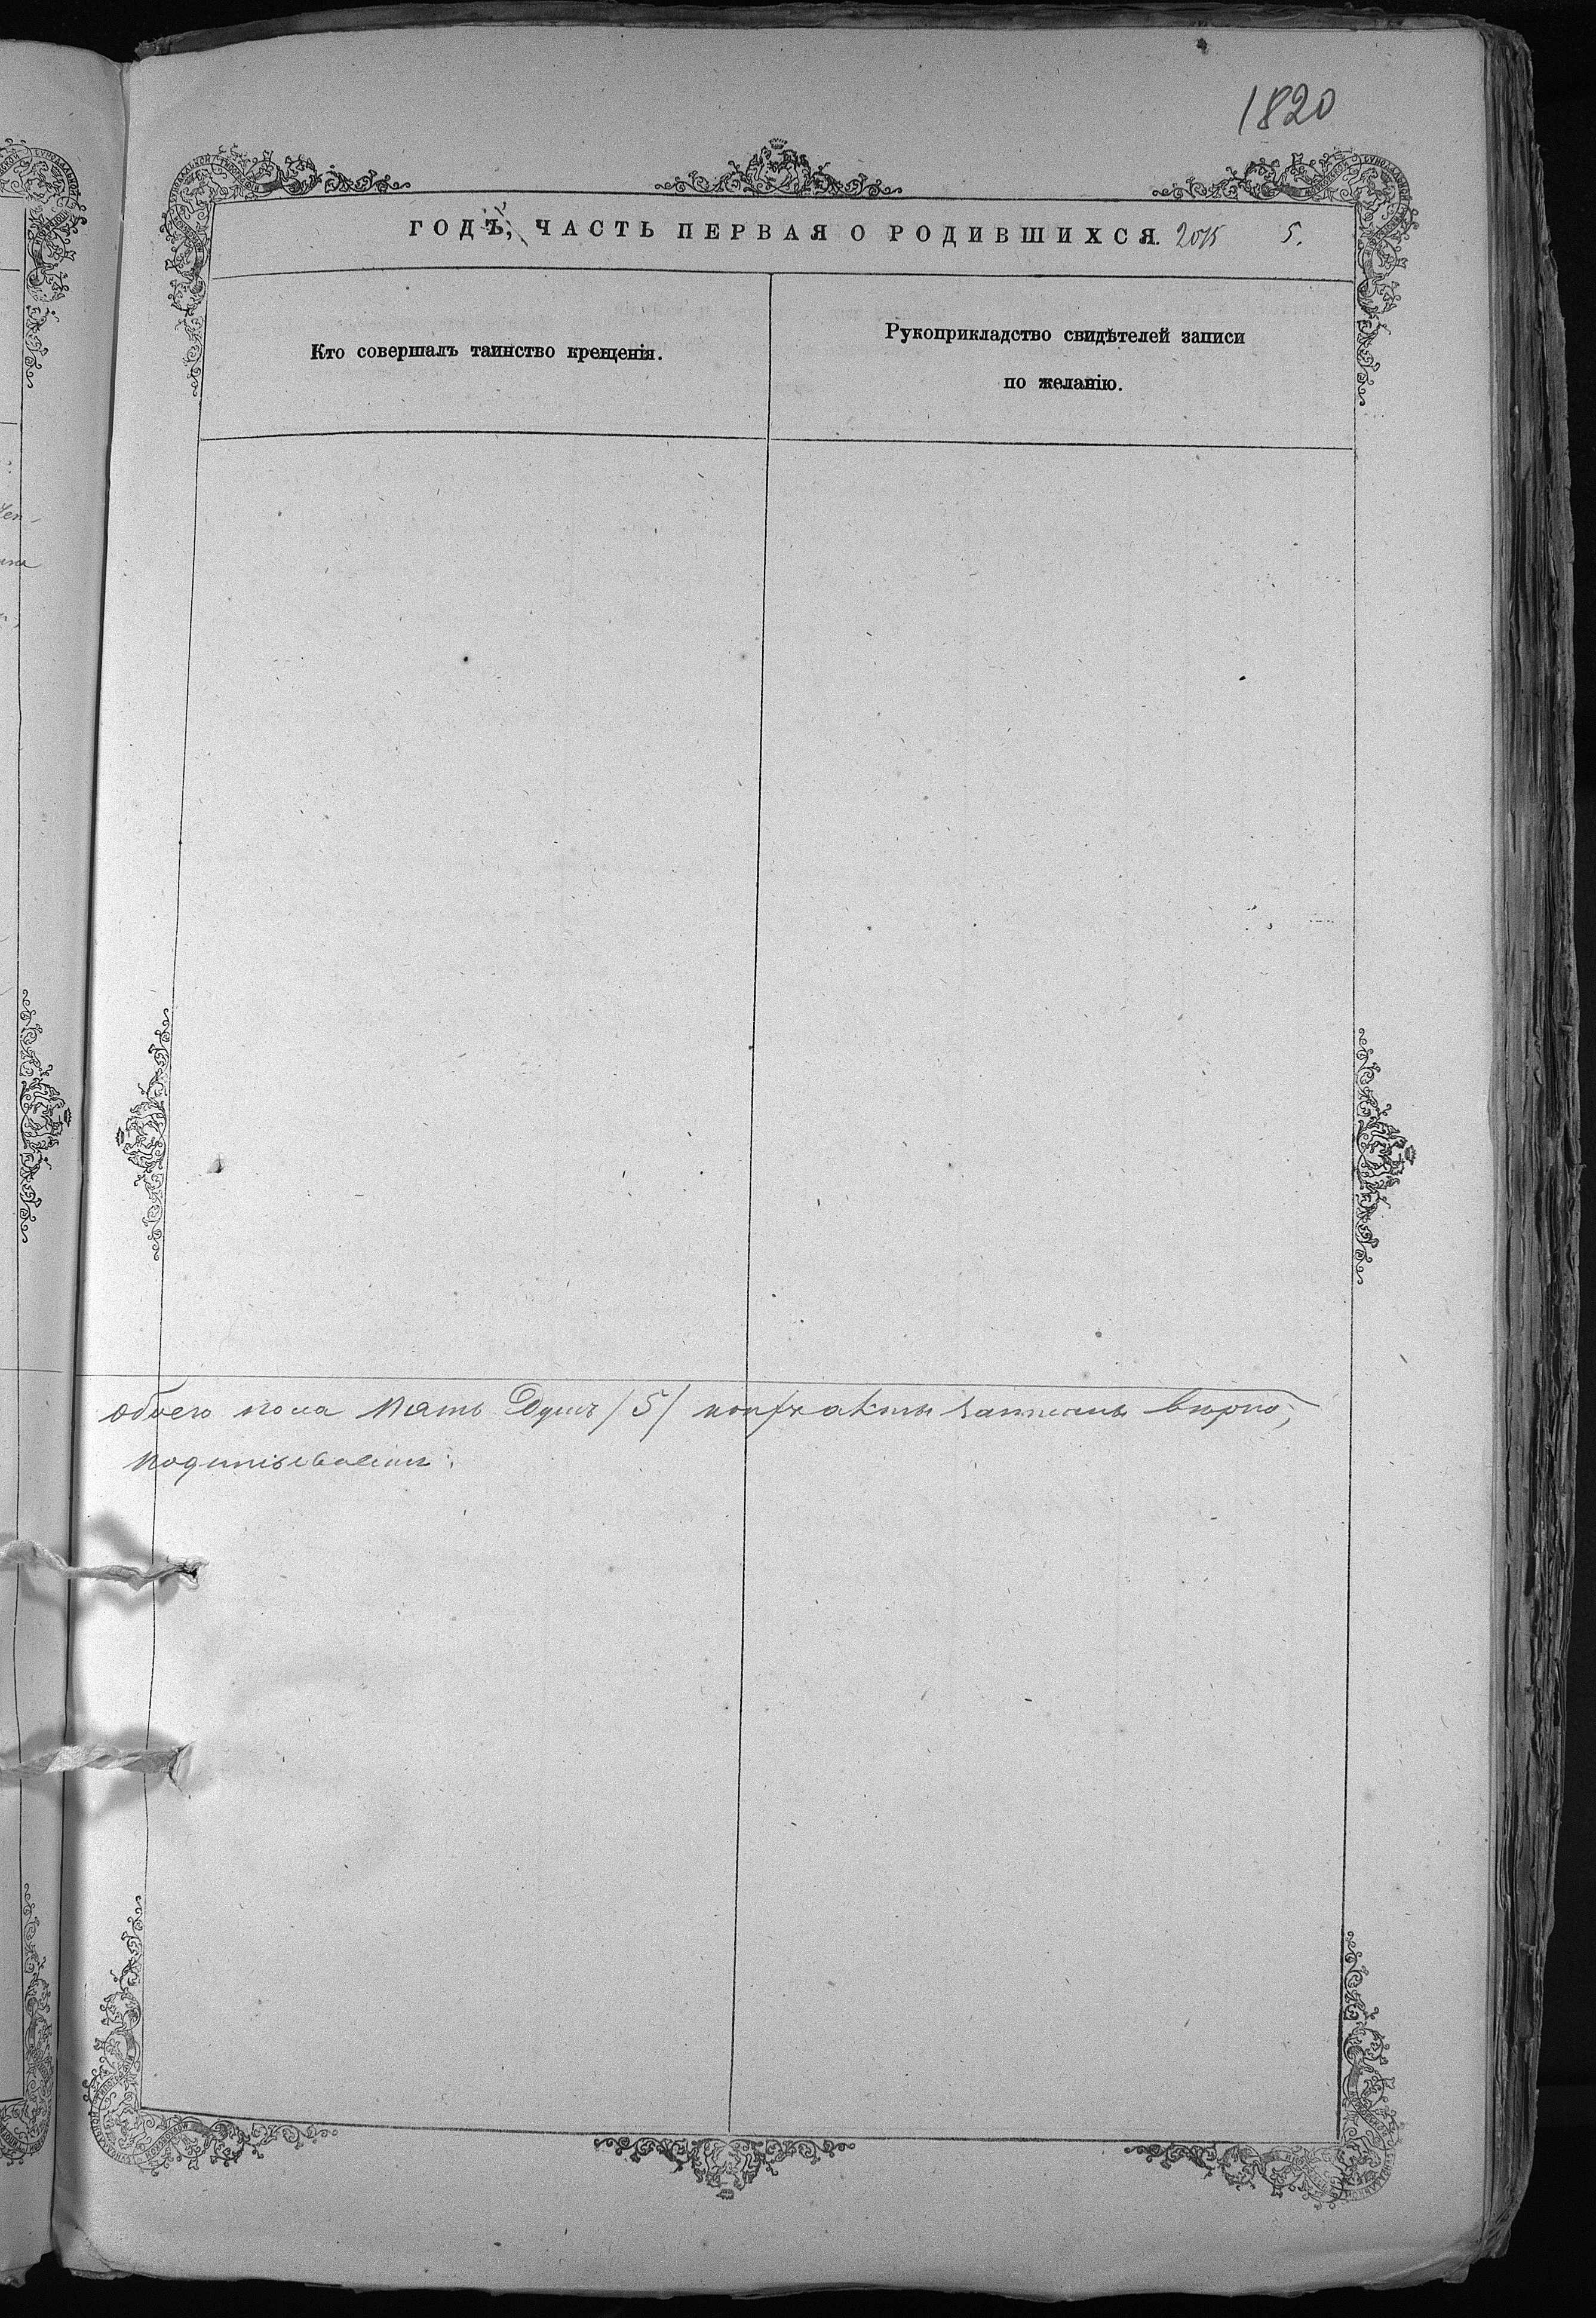 1820
ГОДЪ, ЧАСТЬ ПЕРВАЯ О РОДИВШИХСЯ. 2015 5.
Кто совершалъ таинство крещенія.
Рукоприкладство свидѣтелей записи
по желанію.
обоего пола пять душъ /5/ акты записаны вѣрно,